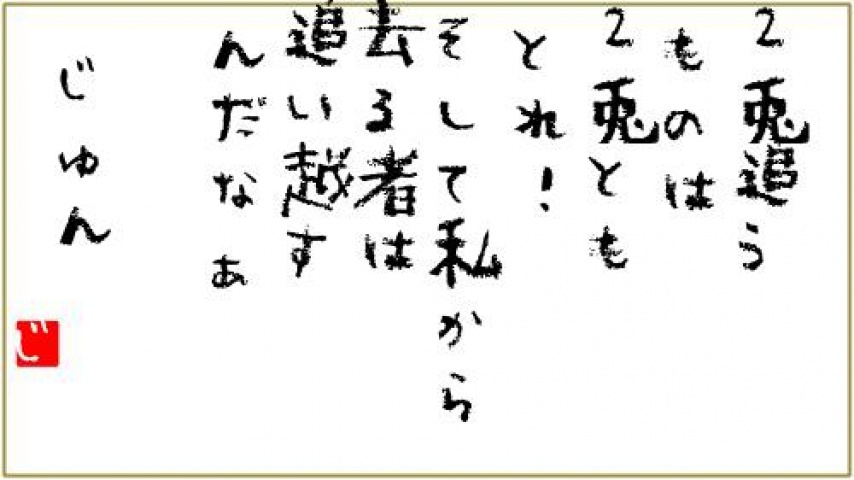 2兎追う
ものは
2兎とも
とれ!
そして私から
去る者は
追い越す
んだなぁ
じゅん
じ